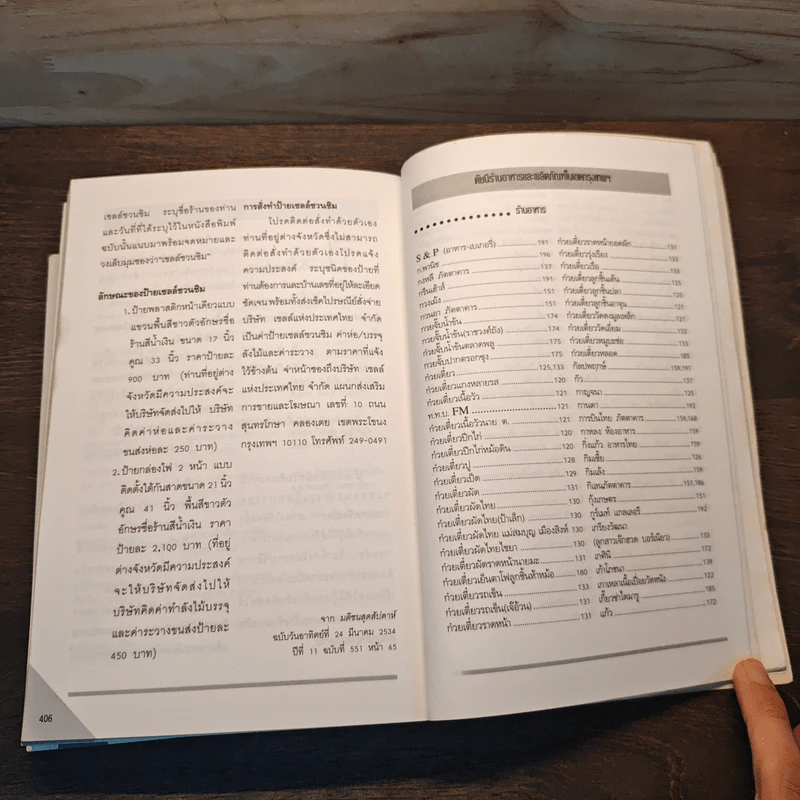 เชลล์ชวนชิม ระบุชื่อร้านของท่าน
และวันที่ที่ได้ระบุไว้ในหนังสือพิมพ์
ฉบับนั้นแนบมาพร้อมจดหมายและ
วงเล็บมุมซองว่า"เชลล์ชวนชิม"
ลักษณะของป้ายเชลล์ชวนชิม
1. ป้ายพลาสติกหน้าเดียวแบบ
แขวนพื้นสีขาวตัวอักษรชื่อ
ร้านสีน้ำเงิน ขนาด 17 นิ้ว
คูณ 33 นิ้ว ราคาป้ายละ
900 บาท (ท่านที่อยู่ต่าง
จังหวัดมีความประสงค์จะ
ให้บริษัทจัดส่งไปให้ บริษัท
คิดค่าห่อและค่าระวาง
ขนส่งห่อละ 250 บาท)
2. ป้ายกล่องไฟ 2 หน้า แบบ
ติดตั้งได้กันสาดขนาด 21 นิ้ว
คูณ 41 นิ้ว พื้นสีขาวตัว
อักษรชื่อร้านสีน้ำเงิน ราคา
ป้ายละ 2,100 บาท (ที่อยู่
ต่างจังหวัดมีความประสงค์
จะให้บริษัทจัดส่งไปให้
บริษัทคิดค่าทำลังไม้บรรจุ
และค่าระวางขนส่งป้ายละ
450 บาท)
การสั่งทำป้ายเชลล์ชวนชิม
โปรดติดต่อสั่งทำด้วยตัวเอง
ท่านที่อยู่ต่างจังหวัดซึ่งไม่สามารถ
ติดต่อสั่งทำด้วยตัวเองโปรดแจ้ง
ความประสงค์ ระบุชนิดของป้ายที่
ท่านต้องการและบ้านเลขที่อยู่ให้ละเอียด
ชัดเจน พร้อมทั้งส่งเช็คไปรษณีย์สั่งจ่าย
บริษัท เชลล์แห่งประเทศไทย จำกัด
เป็นค่าป้ายเชลล์ชวนชิม ค่าห่อ/บรรจุ
ลังไม้และค่าระวาง ตามราคาที่แจ้ง
ไว้ข้างต้น จ่าหน้าซองถึงบริษัท เชลล์
แห่งประเทศไทย จำกัด แผนกส่งเสริม
การขายและโฆษณา เลขที่ 10 ถนน
สุนทรโกษา คลองเตย เขตพระโขนง
กรุงเทพฯ 10110 โทรศัพท์ 249-0491
จาก มติชนสุดสัปดาห์
ฉบับวันอาทิตย์ที่ 24 มีนาคม 2534
ปีที่ 11 ฉบับที่ 551 หน้า 65
406
ดัชนีร้านอาหารและผลิตภัณฑ์ในเขตกรุงเทพฯ
ร้านอาหาร
S & P (อาหาร-เบเกอรี่) 191
ก.พานิช 196
กงหลี ภัตตาคาร 137
กรีนเฮ้าส์ 191
กวงเม้ง 151
กวนอา ภัตตาคาร 151
ก๋วยจั๊บน้ำข้น 174
ก๋วยจั๊บน้ำข้น(ราชวงศ์ถัง) 174
ก๋วยจั๊บน้ำข้นตลาดพลู 175
ก๋วยจั๊บปากตรอกซุง 175
ก๋วยเตี๋ยว 125,133
ก๋วยเตี๋ยวแกงหลายรส 120
ก๋วยเตี๋ยวเนื้อวัว 121
ท.ท.บ. FM 121
ก๋วยเตี๋ยวเนื้อวัวนาย ต. 121
ก๋วยเตี๋ยวปีกไก่ 120
ก๋วยเตี๋ยวปีกไก่หม้อดิน 120
ก๋วยเตี๋ยวปู 128
ก๋วยเตี๋ยวเป็ด 129
ก๋วยเตี๋ยวผัด 131
ก๋วยเตี๋ยวผัดไทย 130
ก๋วยเตี๋ยวผัดไทย(ป้าเล็ก) 131
ก๋วยเตี๋ยวผัดไทย แม่สมบุญ เมืองสิงห์ 130
ก๋วยเตี๋ยวผัดไทไชยา 130
ก๋วยเตี๋ยวผัดราดหน้านายมะ 131
ก๋วยเตี๋ยวเย็นตาโฟลูกชิ้นห้าหม้อ 180
ก๋วยเตี๋ยวรถเข็น 133
ก๋วยเตี๋ยวรถเข็น(เจ๊อ้วน) 131
ก๋วยเตี๋ยวราดหน้า 131
ก๋วยเตี๋ยวราดหน้ายอดผัก 131
ก๋วยเตี๋ยวรุ่งเรือง
ก๋วยเตี๋ยวเรือ
ก๋วยเตี๋ยวลูกชิ้นเต้น
ก๋วยเตี๋ยวลูกชิ้นปลา
ก๋วยเตี๋ยวลูกชิ้นอาจุน 121
ก๋วยเตี๋ยววัดดงมูลเหล็ก 121
ก๋วยเตี๋ยววัดเฉียม
ก๋วยเตี๋ยวหมูบะช่อ 133
ก๋วยเตี๋ยวหลอด 185
กัลปพฤกษ์ 159,191
กัว 131
กาญจนา 121
กานดา 192
การบินไทย ภัตตาคาร 159,168
กาหลง ห้องอาหาร
กิ่งแก้ว อาหารไทย 159
กิมเซี้ย
กิมเล้ง 159
กิเลนภัตตาคาร 151,186
กุ้งเกษตร 151
กูร์เมท์ แกลเลอรี่ 192
เกรียงวัฒนา
(ลูกสาวเจ๊กฮวด บอร์เนียว) 133
เกศินี 172
เก้าโภชนา 139
เกาเหลาเนื้อเปื่อยวัดหนัง 122
เกี๊ยวซ่าไดมารู 185
แก้ว 172